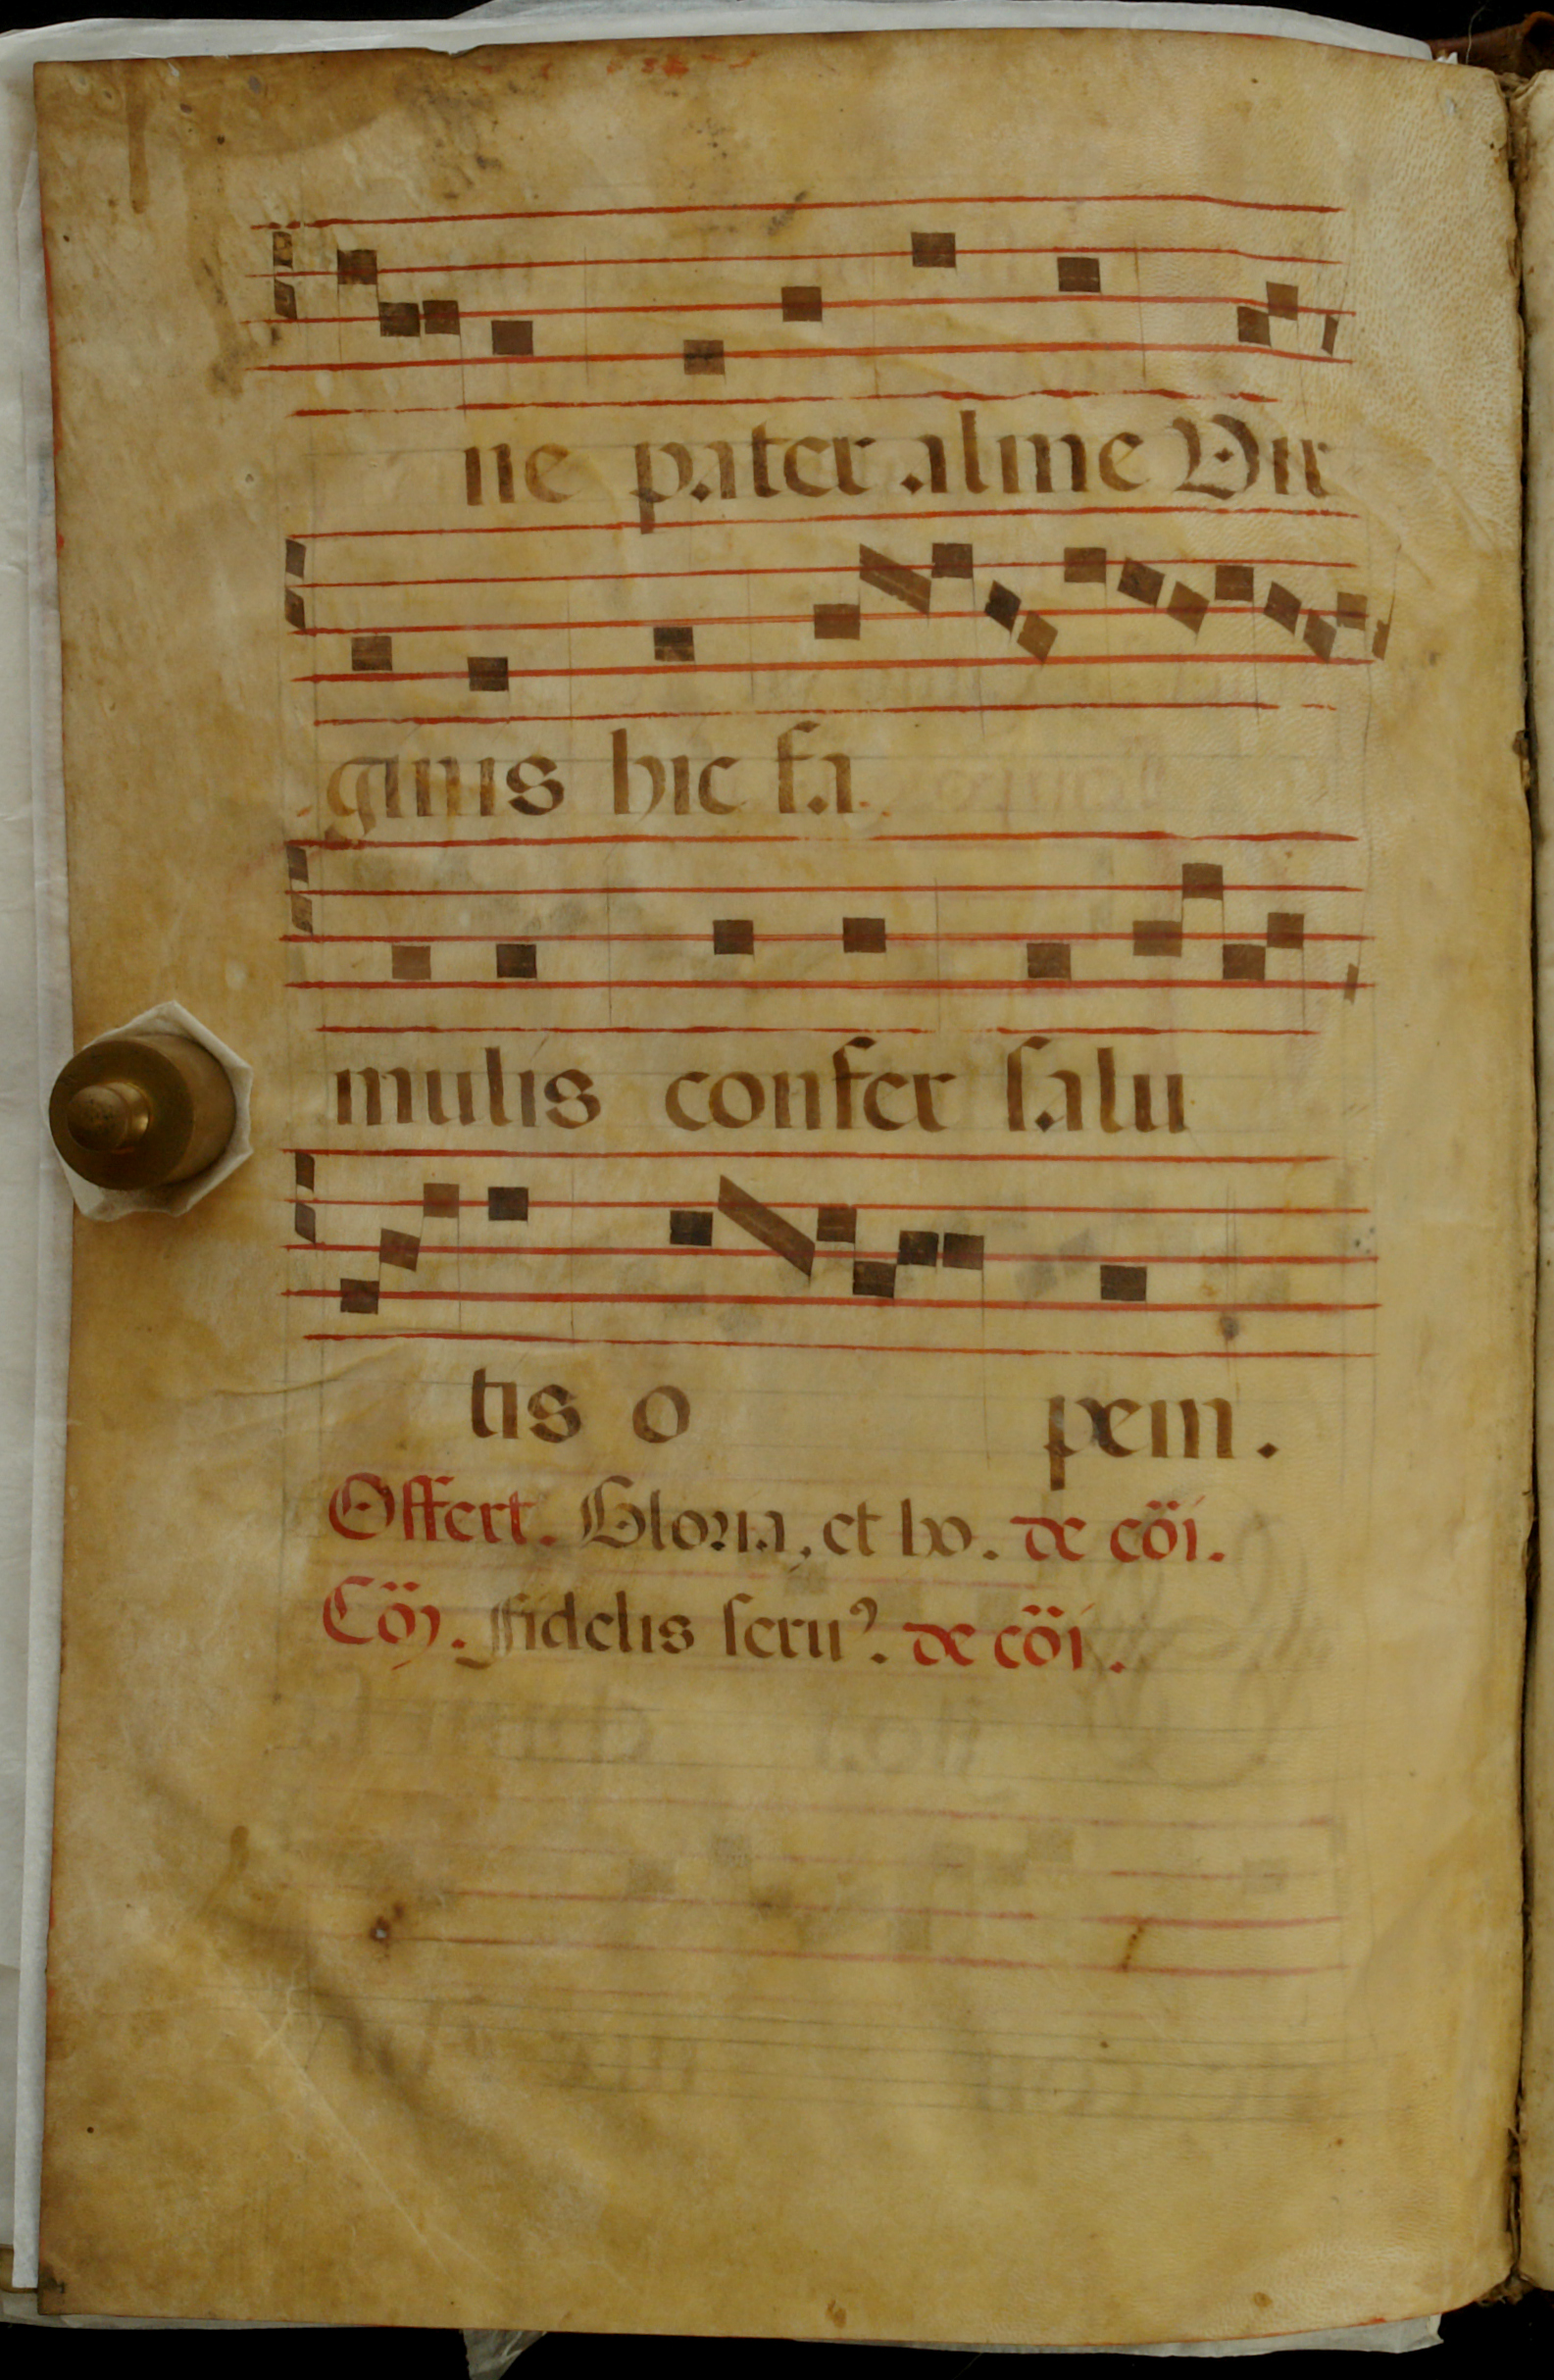 ne pater alme Vir
ginis hic fa
mulis confer salu
tis o pem.
Offert. Gloria, et ho. de cöi.
Cöj. fidelis seruꝰ. de cöi.